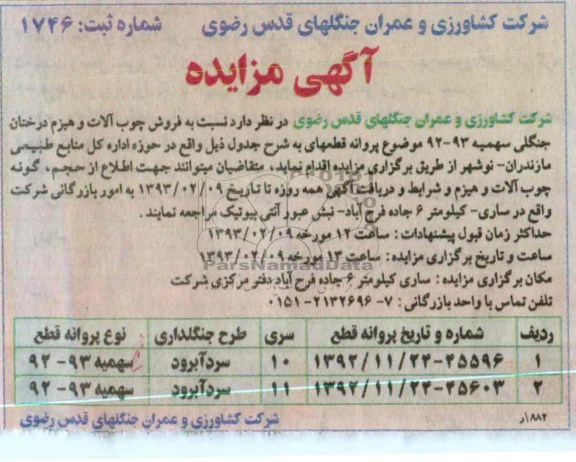 شرکت کشاورزی و عمران جنگلهای قدس رضوی شماره ثبت: ۱۷۴۶
آگهی مزایده
شرکت کشاورزی و عمران جنگلهای قدس رضوی در نظر دارد نسبت به فروش چوب آلات و هیزم درختان
جنگلی سهمیه ۹۳-۹۲ موضوع پروانه قطعهای به شرح جدول ذیل واقع در حوزه اداره کل منابع طبیعی
مازندران- نوشهر از طریق برگزاری مزایده اقدام نماید، متقاضیان میتوانند جهت اطلاع از حجم، گونه
چوب آلات و هیزم و شرایط و دریافت آگهی همه روزه تا تاریخ ۱۳۹۳/۰۲/۰۹ به امور بازرگانی شرکت
واقع در ساری- کیلومتر ۶ جاده فرح آباد- نبش عبور آنتی بیوتیک مراجعه نمایند.
حداکثر زمان قبول پیشنهادات: ساعت ۱۲ مورخه ۱۳۹۳/۰۲/۰۹
ساعت و تاریخ برگزاری مزایده: ساعت ۱۳ مورخه ۱۳۹۳/۰۲/۰۹
ParsNamadData
مکان برگزاری مزایده: ساری کیلومتر ۶ جاده فرح آباد دفتر مرکزی شرکت
تلفن تماس با واحد بازرگانی: ۷-۲۱۳۲۶۹۶-۰۱۵۱
ردیف شماره و تاریخ پروانه قطع سری طرح جنگلداری نوع پروانه قطع
۱ ۱۳۹۲/۱۱/۲۴-۴۵۵۹۶ ۱۰ سردآبرود سهمیه ۹۳-۹۲
۲ ۱۳۹۲/۱۱/۲۴-۴۵۶۰۳ ۱۱ سردآبرود سهمیه ۹۳-۹۲
۱۸۸۲/ر شرکت کشاورزی و عمران جنگلهای قدس رضوی